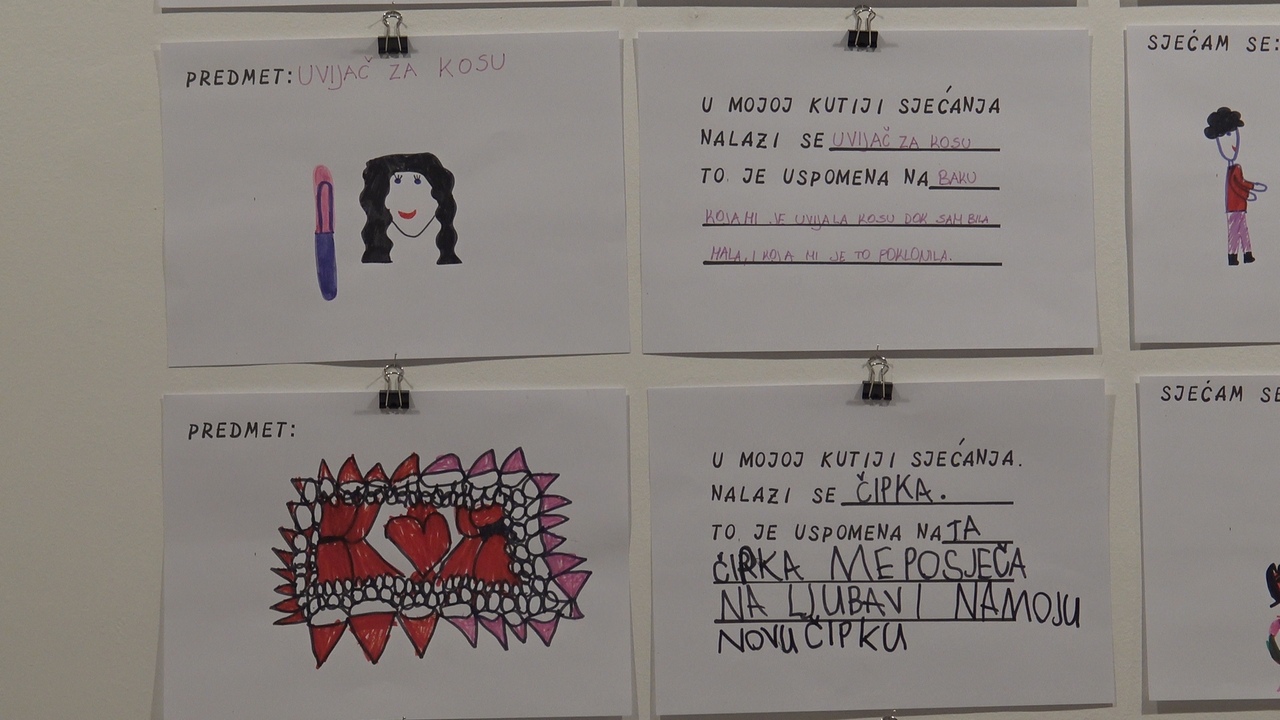 PREDMET: UVIJAČ ZA KOSU
U MOJOJ KUTIJI SJEĆANJA
NALAZI SE UVIJAČ ZA KOSU
TO JE USPOMENA NA BAKU
KOJA MI JE UVIJALA KOSU DOK SAM BILA
MALA, I KOJA MI JE TO POKLONILA.
SJEĆAM SE:
PREDMET:
U MOJOJ KUTIJI SJEĆANJA.
NALAZI SE ČIPKA.
TO JE USPOMENA NA TA
ČIPKA ME POSJEČA
NA LJUBAV I NA MOJU
NOVU ČIPKU
SJEĆAM SE